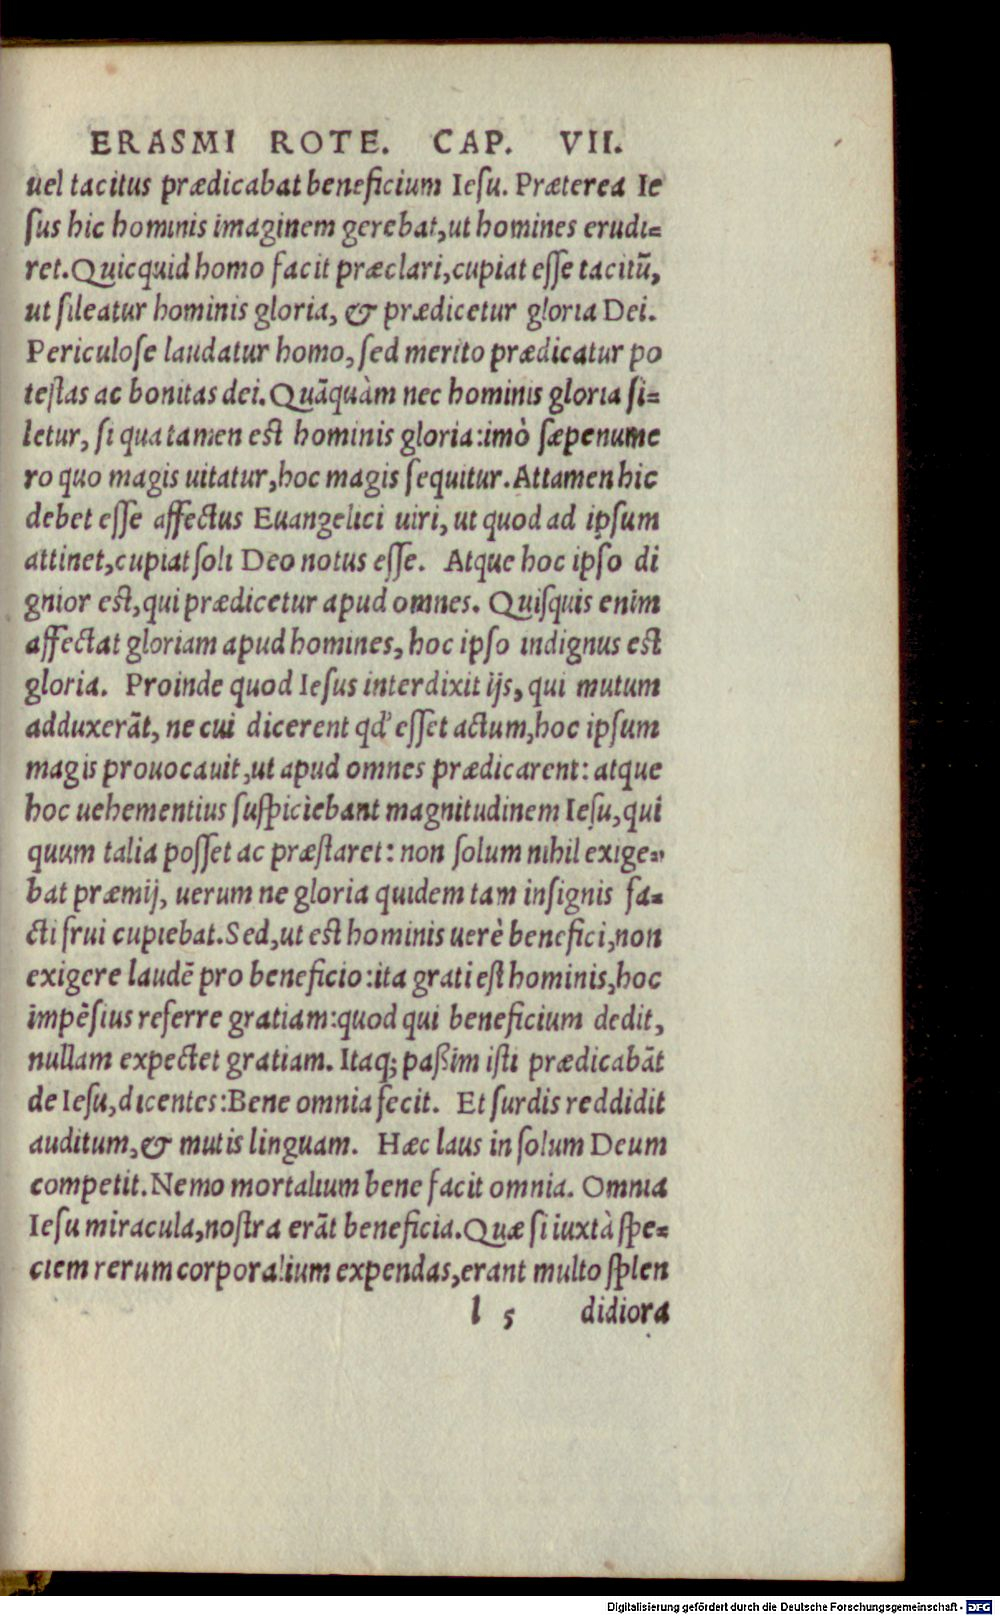 ERASMI ROTE. CAP. VII.
uel tacitus prædicabat beneficium Ieſu. Præterea Ie
ſus hic hominis imaginem gerebat, ut homines erudi=
ret. Quicquid homo facit præclari, cupiat eſſe tacitū,
ut ſileatur hominis gloria, & prædicetur gloria Dei.
Periculoſe laudatur homo, ſed merito prædicatur po
teſtas ac bonitas dei. Quāquàm nec hominis gloria ſi=
letur, ſi qua tamen est hominis gloria: imò ſæpenume
ro quo magis uitatur, hoc magis ſequitur. Attamen hic
debet eſſe affectus Euangelici uiri, ut quod ad ipſum
attinet, cupiat ſoli Deo notus eſſe. Atque hoc ipſo di
gnior est, qui prædicetur apud omnes. Quiſquis enim
affectat gloriam apud homines, hoc ipſo indignus est
gloria. Proinde quod Ieſus interdixit ijs, qui mutum
adduxerāt, ne cui dicerent qd' eſſet actum, hoc ipſum
magis prouocauit, ut apud omnes prædicarent: atque
hoc uehementius ſuſpiciebant magnitudinem Ieſu, qui
quum talia poſſet ac præſtaret: non ſolum nihil exige=
bat præmij, uerum ne gloria quidem tam inſignis fa=
cti frui cupiebat. Sed, ut est hominis uerè benefici, non
exigere laudē pro beneficio: ita grati eſt hominis, hoc
impēſius referre gratiam: quod qui beneficium dedit,
nullam expectet gratiam. Itaq; paßim iſti prædicabāt
de Ieſu, dicentes: Bene omnia fecit. Et ſurdis reddidit
auditum, & mutis linguam. Hæc laus in ſolum Deum
competit. Nemo mortalium bene facit omnia. Omnia
Ieſu miracula, noſtra erāt beneficia. Quæ ſi iuxtà ſpe=
ciem rerum corporalium expendas, erant multo ſplen
l 5 didiora
Digitalisierung gefördert durch die Deutsche Forschungsgemeinschaft - DFG